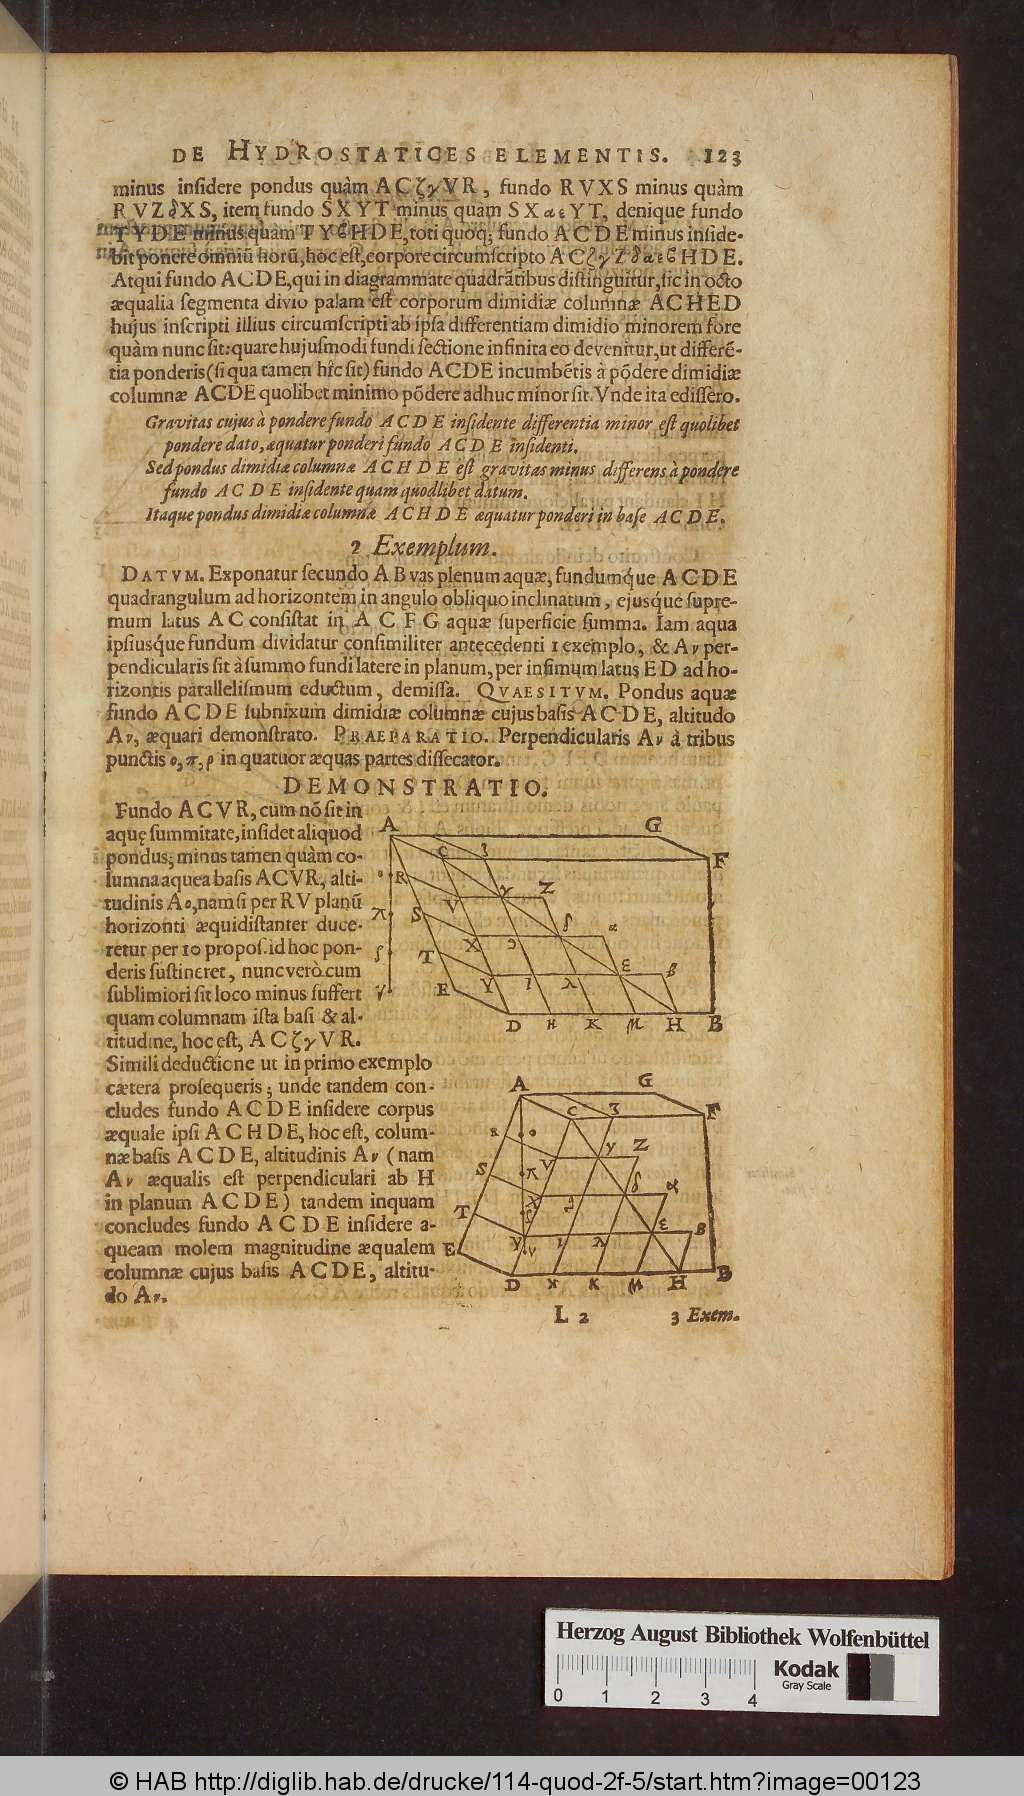 DE HYDROSTATICES ELEMENTIS. 123
minus inſidere pondus quàm ACζγVR, fundo RVXS minus quàm
RVZδXS, item fundo SXYT minus quàm SXαεYT, denique fundo
TYDE minus quàm TYϐHDE, toti quoq; fundo ACDE minus inſide-
bit pōnere omniū horū, hoc eſt, corpore circumſcripto ACζγZδαεϐHDE.
Atqui fundo ACDE, qui in diagrammate quadrātibus diſtinguitur, ſic in octo
æqualia ſegmenta diviſo palam eſt corporum dimidiæ columnæ ACHED
hujus inſcripti illius circumſcripti ab ipſa differentiam dimidio minorem fore
quàm nunc ſit: quare hujuſmodi fundi ſectione infinita eo devenitur, ut differē-
tia ponderis (ſi qua tamen hîc ſit) fundo ACDE incumbētis à pōdere dimidiæ
columnæ ACDE quolibet minimo pōdere adhuc minor ſit. Vnde ita ediſſero.
Gravitas cujus à pondere fundo ACDE inſidente differentia minor eſt quolibet
pondere dato, æquatur ponderi fundo ACDE inſidenti.
Sed pondus dimidiæ columnæ ACHDE eſt gravitas minus differens à pondere
fundo ACDE inſidente quam quodlibet datum.
Itaque pondus dimidiæ columnæ ACHDE æquatur ponderi in baſe ACDE.
2 Exemplum.
DATVM. Exponatur ſecundo AB vas plenum aquæ, fundumq́ue ACDE
quadrangulum ad horizontem in angulo obliquo inclinatum, ejusq́ue ſupre-
mum latus AC conſiſtat in ACFG aquæ ſuperficie ſumma. Iam aqua
ipſiusq́ue fundum dividatur conſimiliter antecedenti 1 exemplo, & Aν per-
pendicularis ſit à ſummo fundi latere in planum, per infimum latus ED ad ho-
rizontis paralleliſmum eductum, demiſſa. QVAESITVM. Pondus aquæ
fundo ACDE ſubnixum dimidiæ columnæ cujus baſis ACDE, altitudo
Aν, æquari demonſtrato. PRAEPARATIO. Perpendicularis Aν à tribus
punctis ο, π, ρ in quatuor æquas partes diſſecator.
DEMONSTRATIO.
Fundo ACVR, cum nō ſit in
aquę ſummitate, inſidet aliquod
pondus; minus tamen quàm co-
lumna aquea baſis ACVR, alti-
tudinis Aο, nam ſi per RV planū
horizonti æquidiſtanter duce-
retur per 10 propoſ. id hoc pon-
deris ſuſtineret, nunc verò cum
ſublimiori ſit loco minus ſuffert
quam columnam iſta baſi & al-
titudine, hoc eſt, ACζγVR.
Simili deductione ut in primo exemplo
cætera proſequeris; unde tandem con-
cludes fundo ACDE inſidere corpus
æquale ipſi ACHDE, hoc eſt, colum-
næ baſis ACDE, altitudinis Aν (nam
Aν æqualis eſt perpendiculari ab H
in planum ACDE) tandem inquam
concludes fundo ACDE inſidere a-
queam molem magnitudine æqualem
columnæ cujus baſis ACDE, altitu-
do Aν.
A G
C ζ F
ο R V γ Z
π S X δ α
ρ T Y ι λ ε β
ν E
D K M H B
A G
C ζ F
R ο V γ Z
S π X δ α
T ρ Y ι λ ε β
E ν
D K M H B
L 2 3 Exem.
Herzog August Bibliothek Wolfenbüttel
Kodak
Gray Scale
0 1 2 3 4
© HAB http://diglib.hab.de/drucke/114-quod-2f-5/start.htm?image=00123